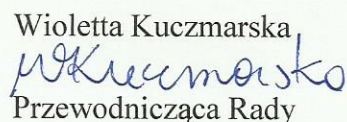 Wioletta Kuczmarska
WKuczmarska
Przewodnicząca Rady